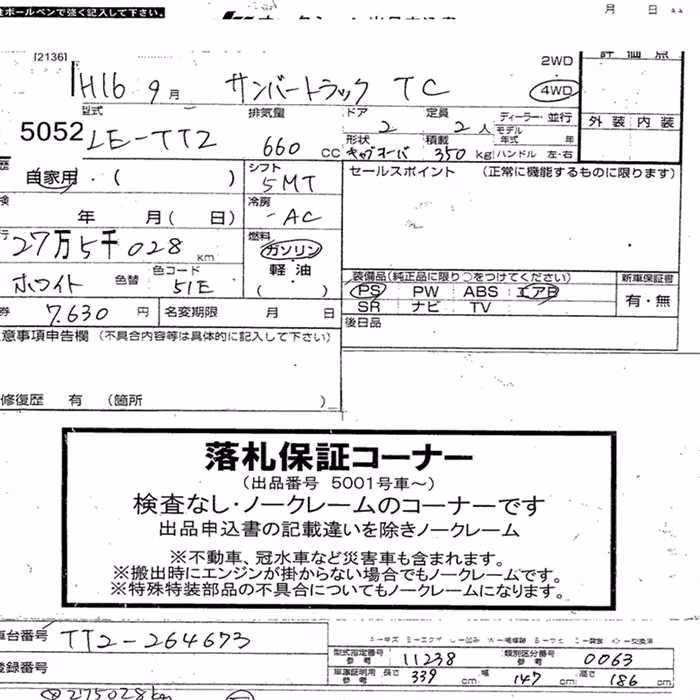 ボールペンで強く記入して下さい。
月 日
[2136]
評価点
H16 9月 サンバートラック TC
2WD
4WD
型式 排気量 ドア 定員 ディーラー・並行
外装 内装
5052 LE-TT2 660 CC 2 2人 モデル年式 年
形状 キャブオーバ 積載 350kg ハンドル 左・右
自家用・( )
シフト 5MT
セールスポイント (正常に機能するものに限ります)
年 月( 日)
冷房 AC
27万5千028km
燃料 ガソリン
軽油
( )
ホワイト 色替 色コード 51E
装備品(純正品に限り○をつけてください) 新車保証書
PS PW ABS エアB 有・無
SR ナビ TV
券 7,630円 名変期限 月 日
後日品
意事項申告欄 (不具合内容等は具体的に記入して下さい)
修復歴 有 (箇所 )
落札保証コーナー
(出品番号 5001号車~)
検査なし・ノークレームのコーナーです
出品申込書の記載違いを除きノークレーム
※不動車、冠水車など災害車も含まれます。
※搬出時にエンジンが掛からない場合でもノークレームです。
※特殊特装部品の不具合についてもノークレームになります。
車台番号 TT2-264673
登録番号
型式指定番号 参考 11238 類別区分番号 参考 0063
車庫証明用 参考 長さ 339cm 幅 147cm 高さ 186cm
275028km